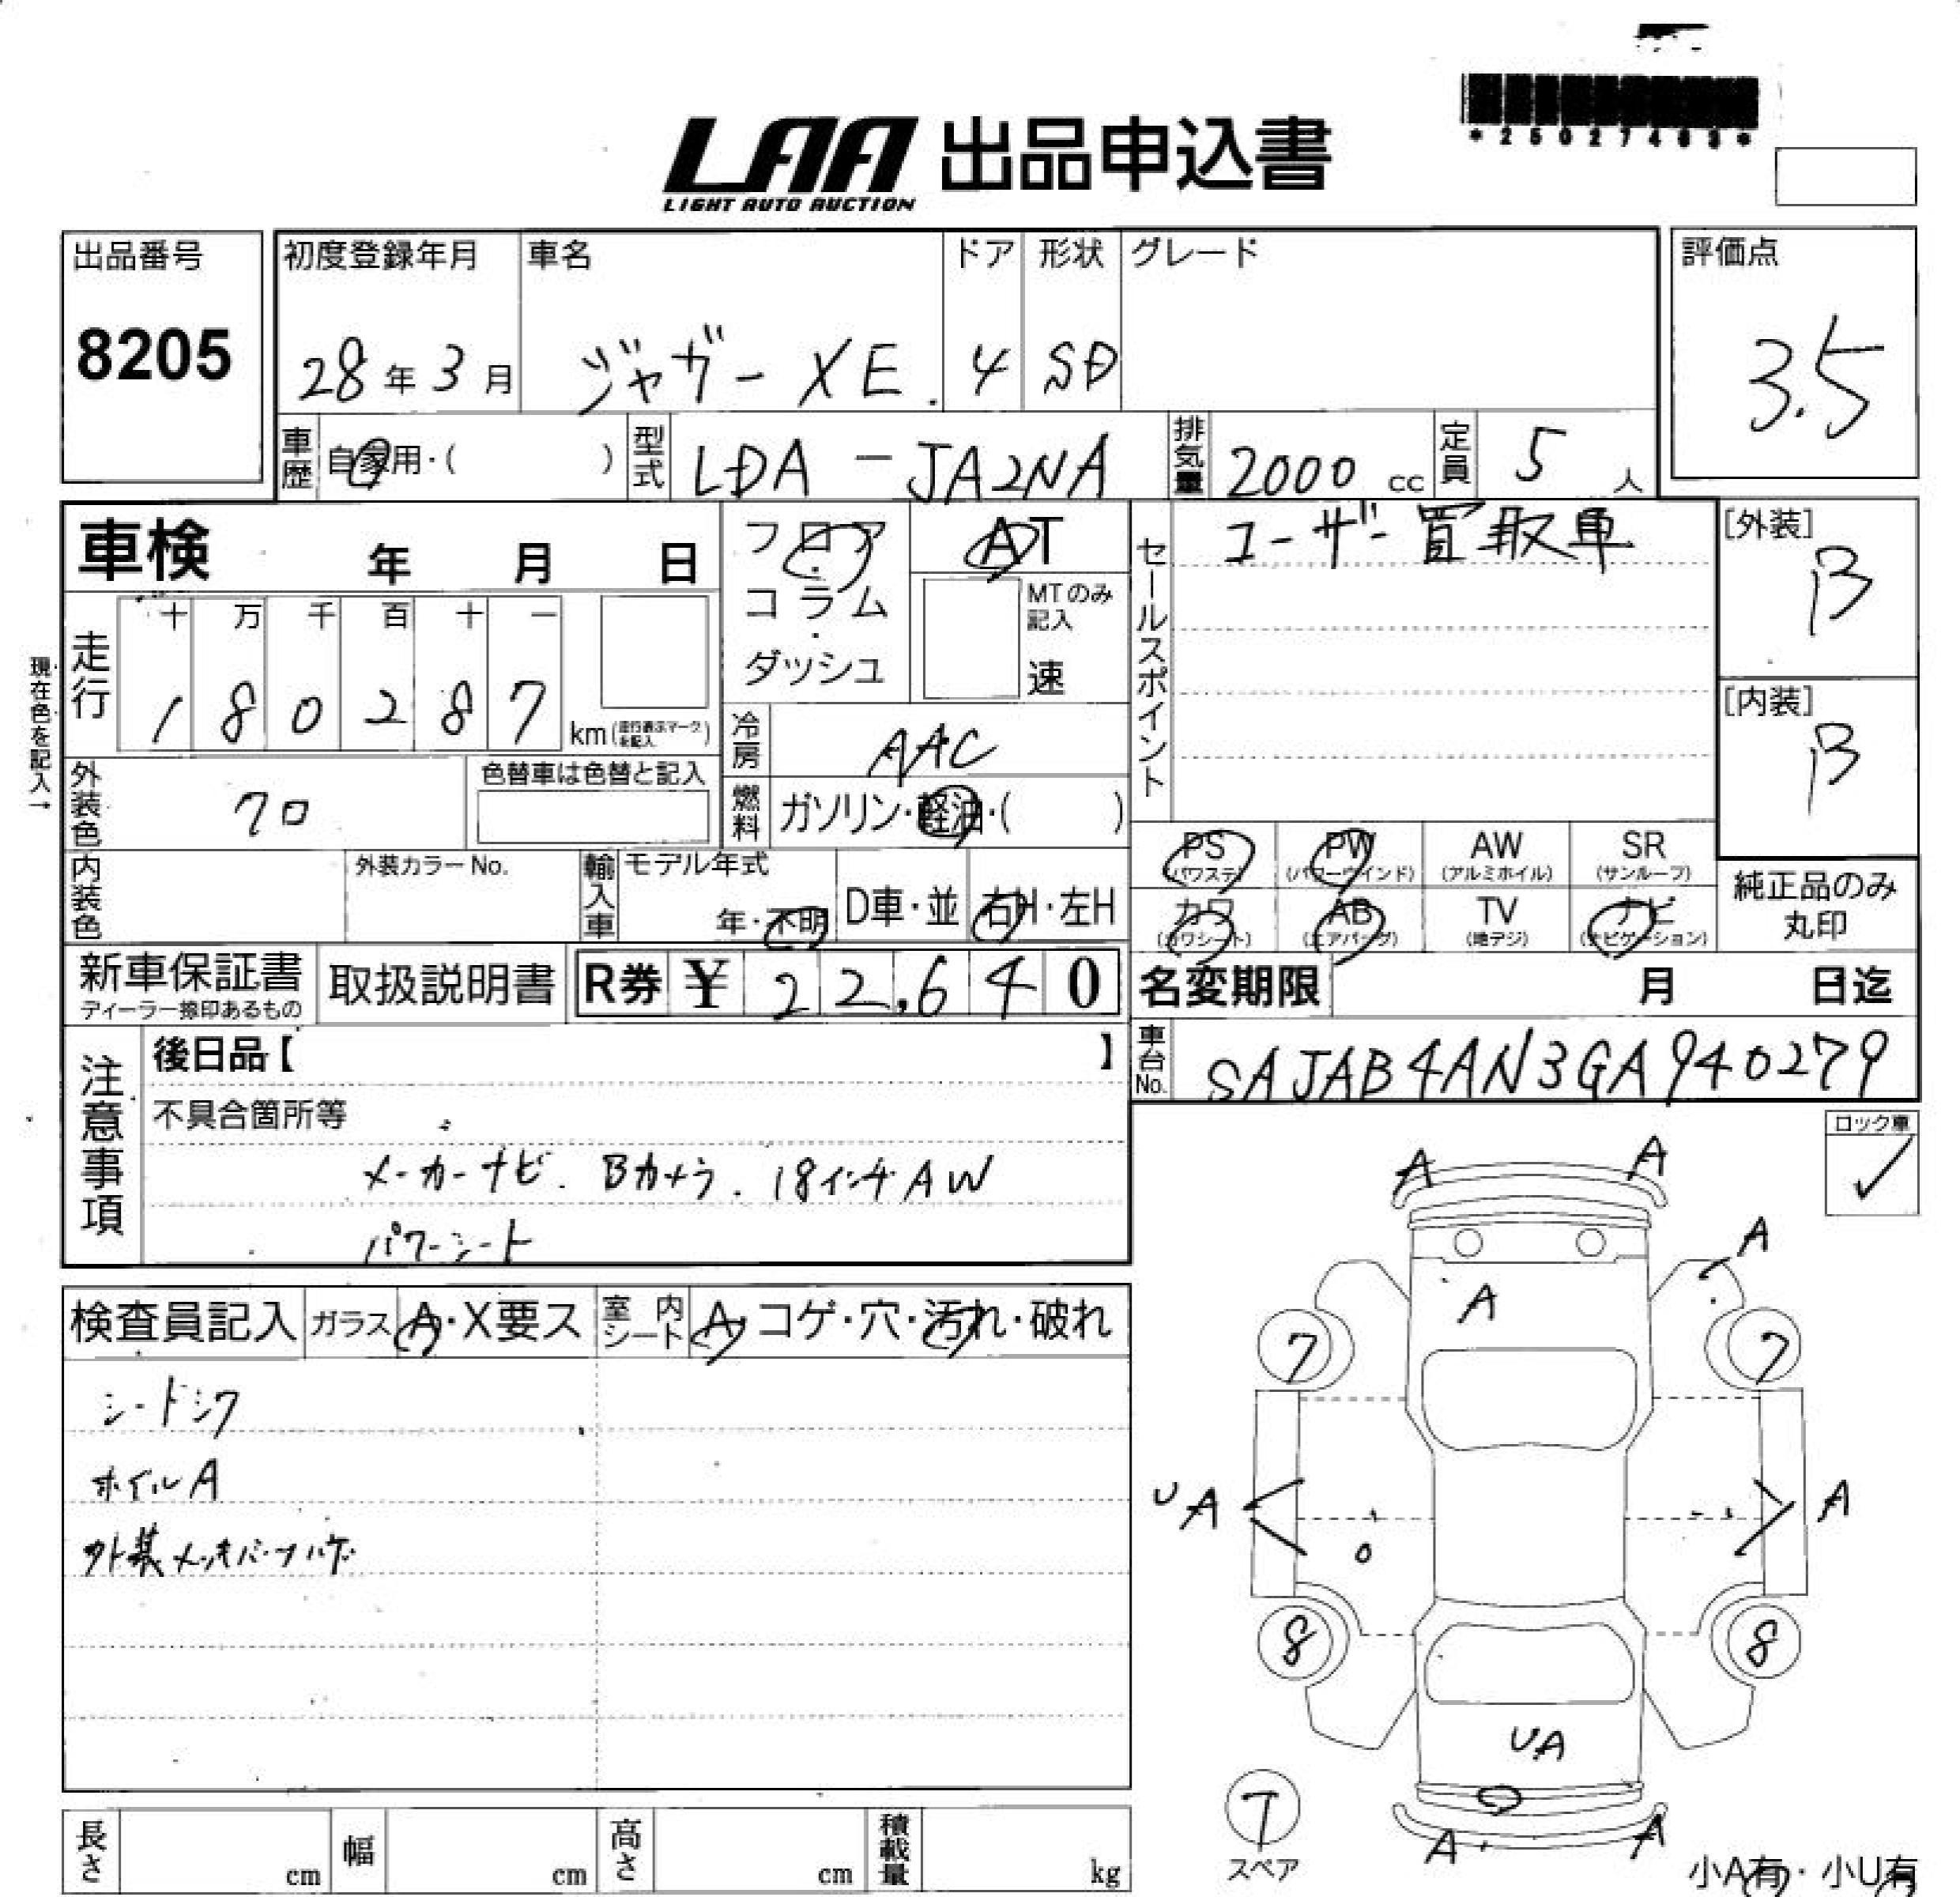 *25027483*
LAA 出品申込書
LIGHT AUTO AUCTION
出品番号 初度登録年月 車名 ドア 形状 グレード 評価点
8205 28年3月 ジャガー XE. 4 SD 3.5
車歴 自家用・( ) 型式 LDA-JA2NA 排気量 2000 cc 定員 5 人
車検 年 月 日 フロア・コラム・ダッシュ AT セールスポイント ユーザー買取車 [外装] B
MTのみ記入 速
現在色を記入→
走行 十 万 千 百 十 一
1 8 0 2 8 7 km(走行表示マークを記入) [内装] B
冷房 AAC
外装色 クロ 色替車は色替と記入 燃料 ガソリン・軽油・( )
PS(パワステ) PW(パワーウインド) AW(アルミホイル) SR(サンルーフ)
内装色 外装カラーNo. 輸入車 モデル年式 年・不明 D車・並 右H・左H
カワ(カワシート) AB(エアバッグ) TV(地デジ) ナビ(ナビゲーション) 純正品のみ丸印
新車保証書 ディーラー捺印あるもの 取扱説明書 R券 ¥ 22,640 名変期限 月 日迄
注意事項 後日品【 】 車台No. SAJAB4AN3GA940279
不具合箇所等 ロック車 ✓
メーカーナビ. Bカメラ. 18インチAW
パワーシート
検査員記入 ガラス A・X要ス 室内シート A・コゲ・穴・汚れ・破れ
シートシワ
ホイルA
外装メッキパーツハゲ
A A
A
A
7 7
UA A
8 8
UA
T
スペア
A A
小A有・小U有
長さ cm 幅 cm 高さ cm 積載量 kg